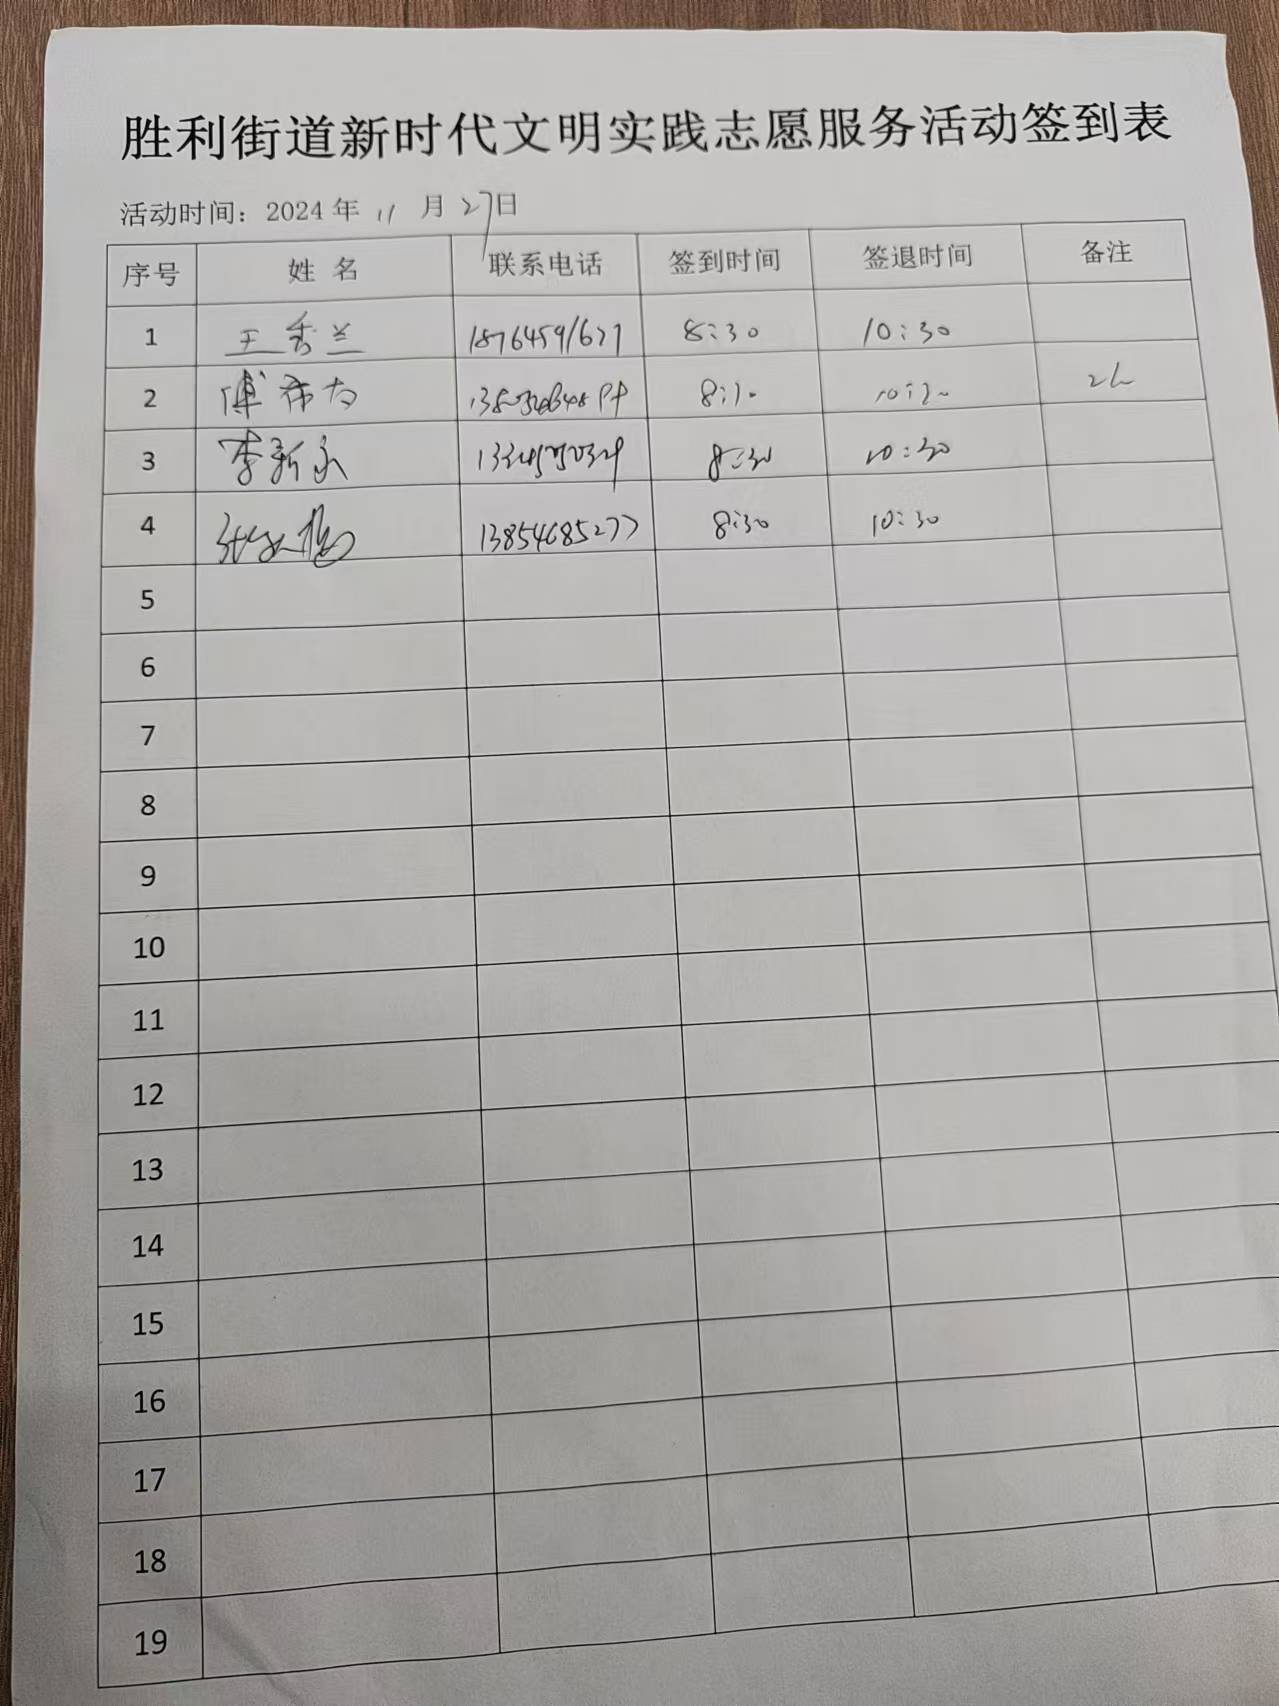 胜利街道新时代文明实践志愿服务活动签到表
活动时间：2024 年 11 月 27日
序号 姓 名 联系电话 签到时间 签退时间 备注
1 王秀兰 18764591671 8:30 10:30
2 傅希 8:30 10:30 2h
3 李新永 8:30 10:30
4 13854685277 8:30 10:30
5
6
7
8
9
10
11
12
13
14
15
16
17
18
19